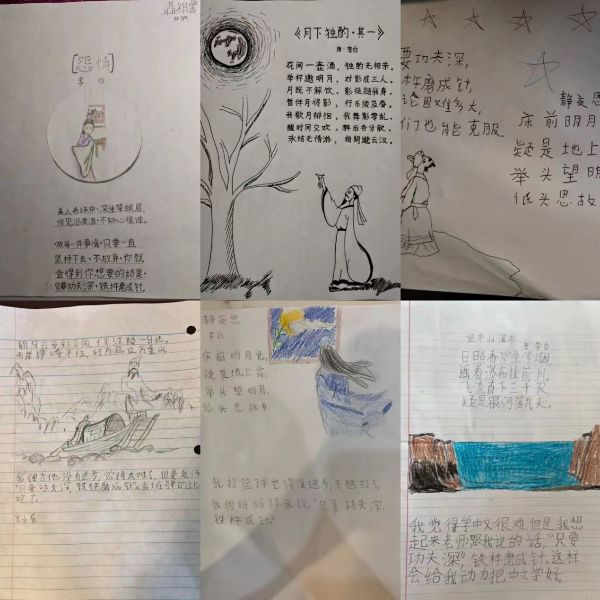 [怨情]
李白
美人卷珠帘,深坐颦蛾眉.
但见泪痕湿,不知心恨谁.
做每一件事情,只要一直
坚持下去、不放弃,你就
会得到你想要的结果.
只要功夫深,铁杵磨成针.
《月下独酌·其一》
唐·李白
花间一壶酒,独酌无相亲。
举杯邀明月,对影成三人。
月既不解饮,影徒随我身。
暂伴月将影,行乐须及春。
我歌月徘徊,我舞影零乱。
醒时同交欢,醉后各分散。
永结无情游,相期邈云汉。
要功夫深,
杵磨成针,
论困难多大,
们也能克服.
静夜思
床前明月
疑是地上
举头望明
低头思故
朝辞白帝彩云间,千里江陵一日还,
两岸猿声啼不住,轻舟已过万重山
没有进步,觉得太难了,但是老师
只要功夫深,铁杵磨成针
好了.
静夜思
李白
床前明月光,
疑是地上霜.
举头望明月.
低头思故乡
我打篮球觉得没进步,不想打了,
我的妈妈跟我说“只要功夫深,
铁杵成
望庐山瀑布
唐 李白
日照香炉生紫烟
遥看瀑布挂前川,
飞流直下三千尺
疑是银河落九天。
我觉得学中文很难但是我想
起来老师跟我说的话,“只要
功夫深”,铁杵磨成针.这样
会给我动力把中文学好.